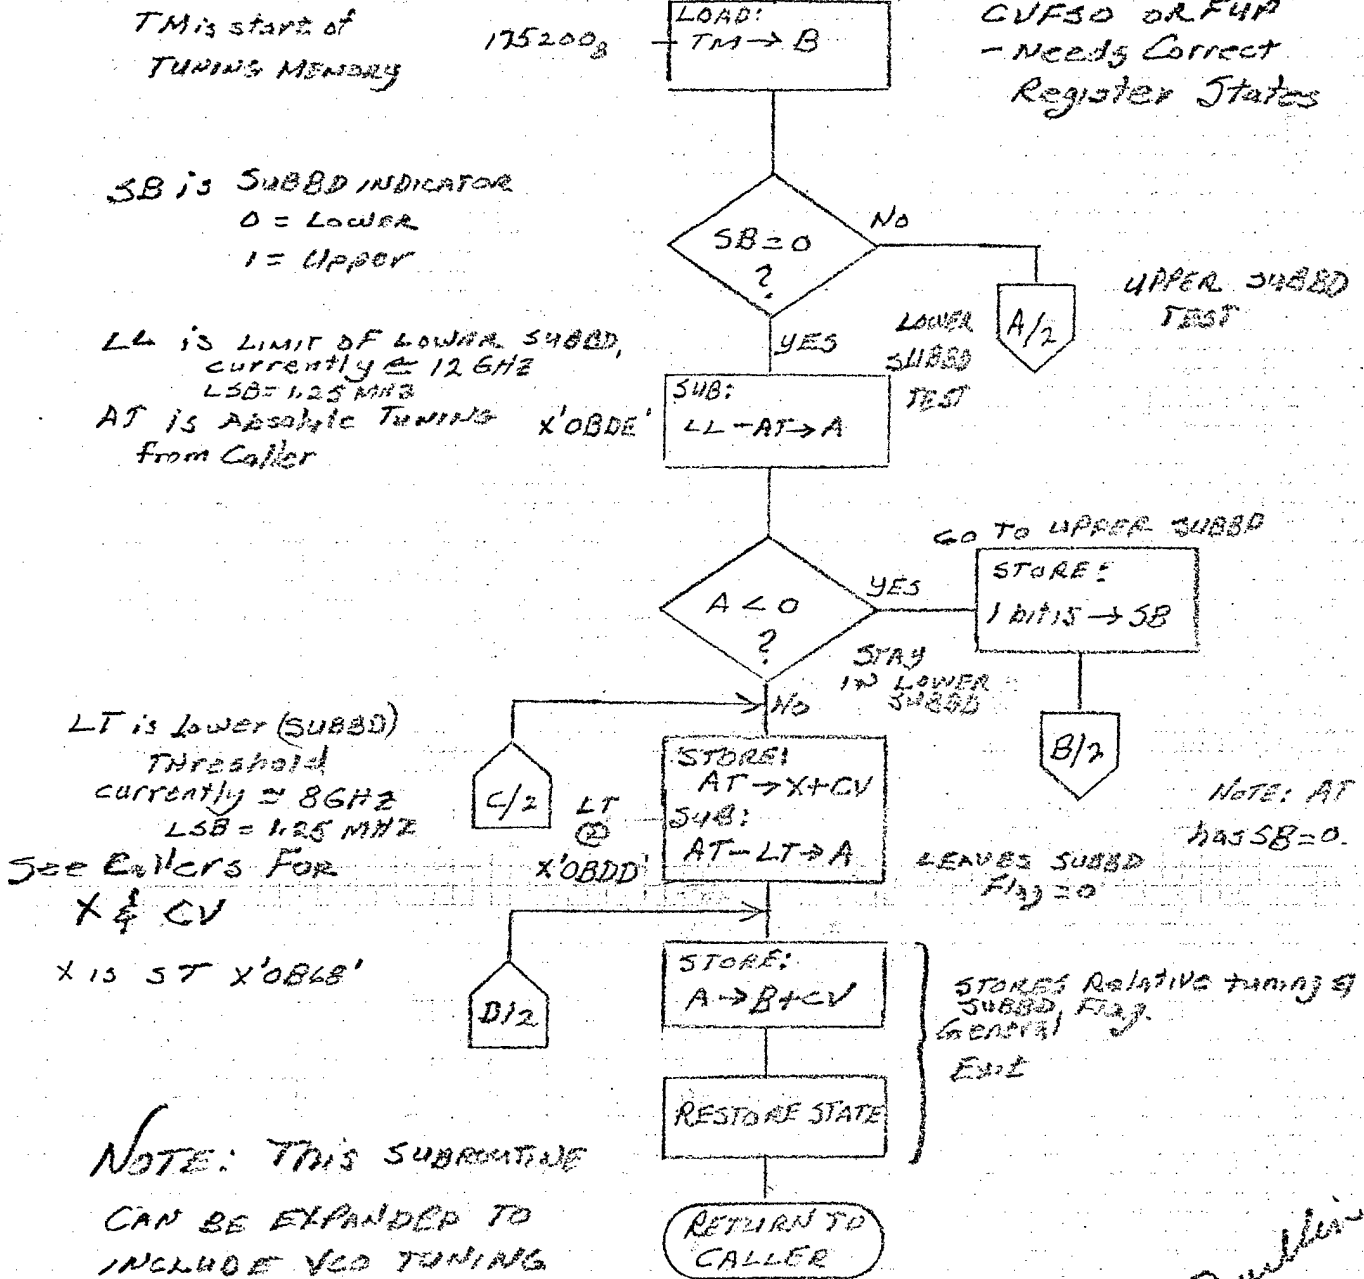 TM is start of
TUNING MEMORY
175200₈
LOAD:
TM → B
CVFSO OR FUP
- Needs Correct
Register States
SB is SUBBD INDICATOR
0 = LOWER
1 = Upper
SB = 0
?
NO
A/2
UPPER SUBBD
TEST
YES
LOWER
SUBBD
TEST
LL is LIMIT OF LOWER SUBBD,
currently ≅ 12 GHZ
LSB = 1.25 MHZ
AT is Absolute TUNING
from Caller
X'0BDE'
SUB:
LL - AT → A
A < 0
?
YES
GO TO UPPER SUBBD
STORE:
1 bit 15 → SB
B/2
STAY
IN LOWER
SUBBD
NO
LT is lower (SUBBD)
Threshold
currently ≅ 8 GHZ
LSB = 1.25 MHZ
See Callers For
X & CV
X IS ST X'0B68'
C/2
LT
@
X'0BDD'
STORE:
AT → X + CV
SUB:
AT - LT → A
NOTE: AT
has SB = 0.
LEAVES SUBBD
Flag = 0
D/2
STORE:
A → B + CV
STORES Relative tuning &
SUBBD Flag.
General
Exit
RESTORE STATE
NOTE: This SUBROUTINE
CAN BE EXPANDED TO
INCLUDE VCO TUNING
RETURN TO
CALLER